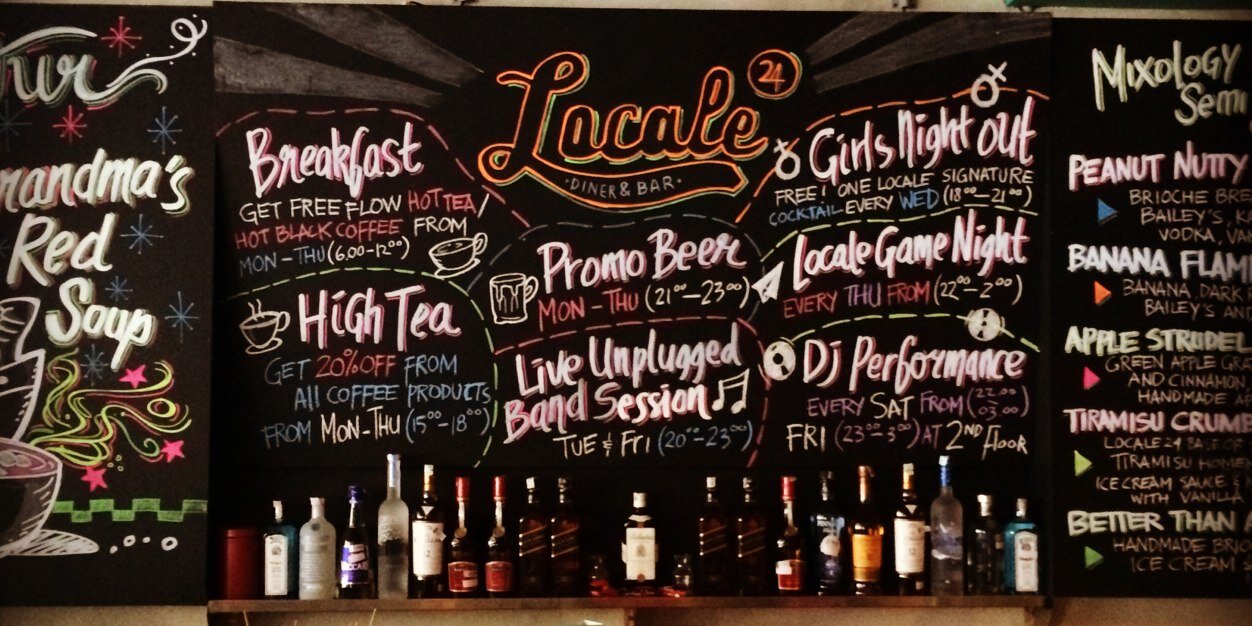 Grandma's
Red
Soup
Breakfast
GET FREE FLOW HOT TEA/
HOT BLACK COFFEE FROM
MON-THU (6.00-12⁰⁰)
HIGH TEA
GET 20% OFF FROM
All COFFEE PRODUCTS
FROM MON-THU (15⁰⁰-18⁰⁰)
Locale 24
·DINER & BAR·
Promo Beer
MON - THU (21⁰⁰-23⁰⁰)
Live Unplugged
Band Session
TUE & FRI (20⁰⁰-23⁰⁰)
Girls Night out
FREE! ONE LOCALE SIGNATURE
COCKTAIL EVERY WED (18⁰⁰-21⁰⁰)
Locale Game Night
EVERY THU FROM (22⁰⁰-2⁰⁰)
Dj Performance
EVERY SAT FROM (22.00
03.00)
FRI (23⁰⁰-3⁰⁰) AT 2ND floor
MIXOLOGY
PEANUT NUTTY
BRIOCHE
BAILEY'S,
VODKA,
BANANA
BANANA, DARK
BAILEY'S AND
APPLE STRUDEL
GREEN APPLE
AND CINNAMON
HANDMADE
TIRAMISU
LOCALE 24 BASE OF
TIRAMISU
ICE CREAM SAUCE &
WITH VANILLA
BETTER THAN
HANDMADE
ICE CREAM